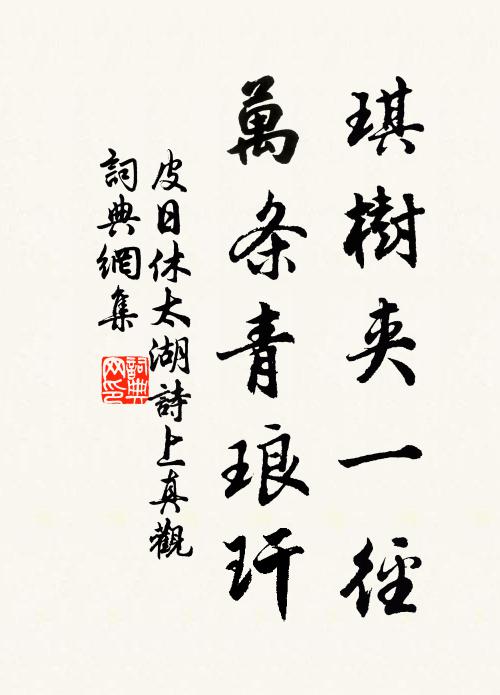 琪樹夾一徑
萬条青琅玕
皮日休太湖詩上真觀
詞典網集
詞典网印